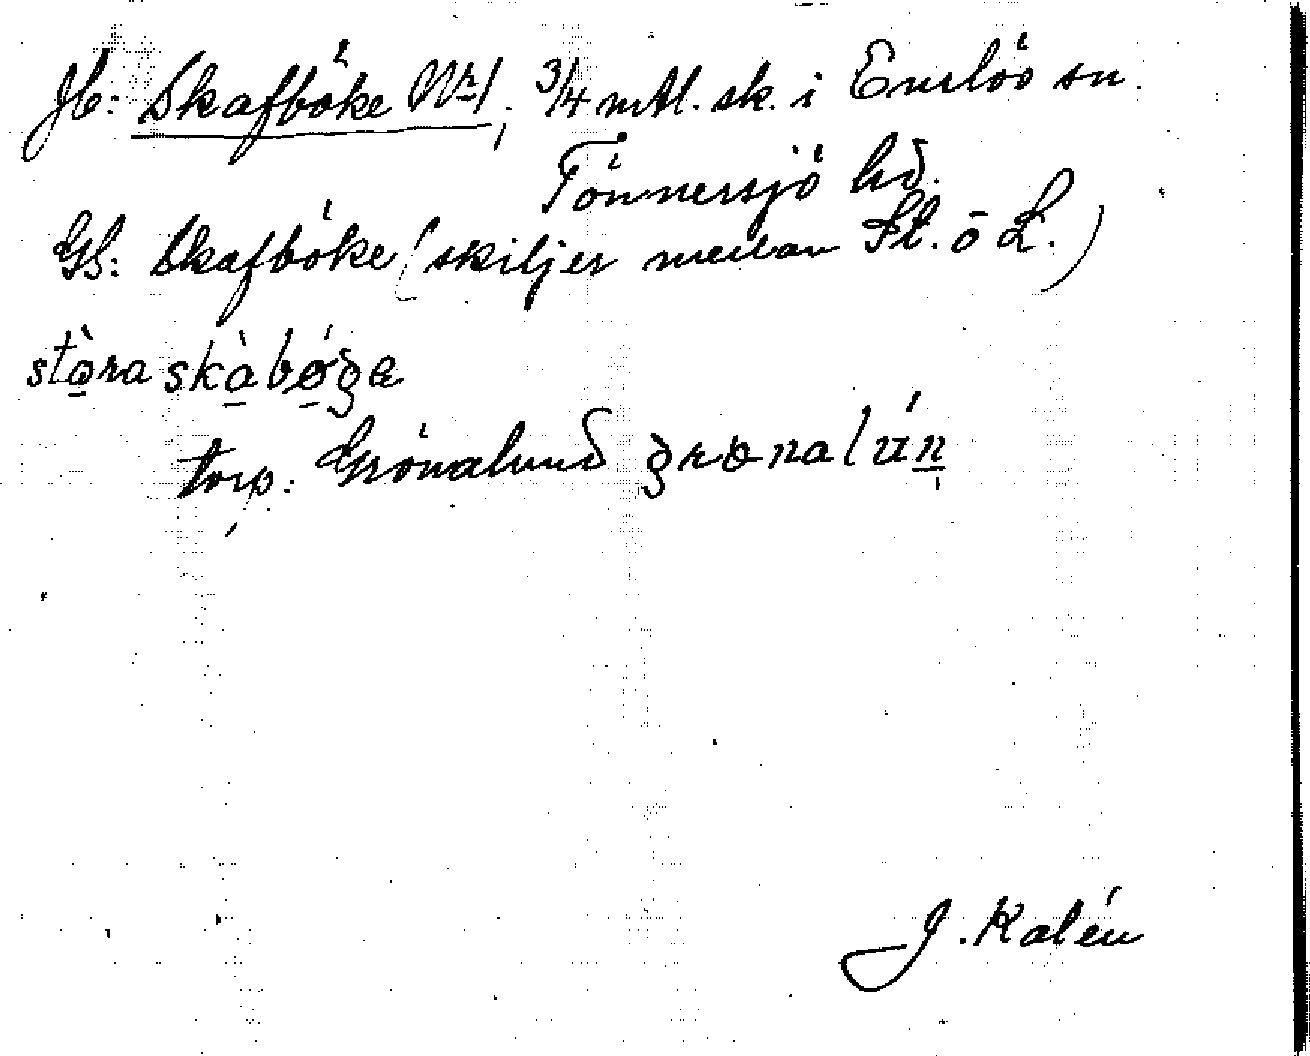 Jb: Skafböke Nr 1, 3/4 mtl. sk. i Enslöv sn.
Tönnersjö hd.
Gs: Skafböke (skiljer mellan St. o L.)
stòra skàbǿga
torp: Grönalund grønalún
J. Kalén